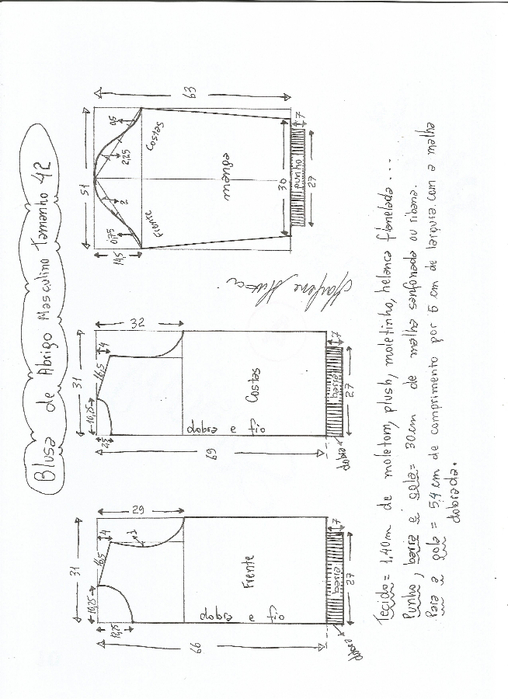 Blusa de Abrigo Masculino Tamanho 42
63
51
14,5
0,75
2
2,25
0,5
Frente
Costas
manga
30
punho
29
7
31
32
10,25
16,5
4
Costas
dobra e fio
69
barra
27
7
dobra
31
29
10,25
16,5
4
3
12,25
Frente
dobra e fio
66
barra
27
7
dobra
Tecido = 1,40m de moletom, plush, moletinho, helanca flanelada ...
Punho, barra e gola = 30cm de malha sanfonada ou ribana.
Para a gola = 54 cm de comprimento por 6 cm de largura com a malha
dobrada.